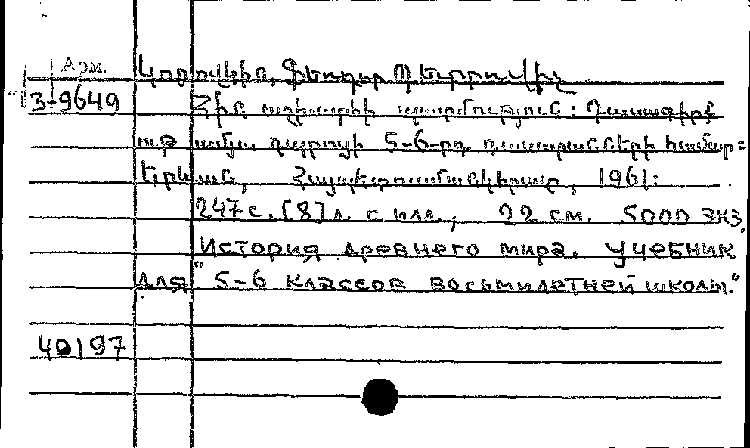 Арм.
Կորովկին, Ֆեոդոր Պետրովիչ
3-9649
Հին աշխարհի պատմություն: Դասագիրք
ութամյա դպրոցի 5-6-րդ դասարանների համար=
Երևան, Հայպետուսմանկհրատ, 1961:
247 с. [8] л. с илл., 22 см. 5000 экз.
История древнего мира. Учебник
для "5-6 классов восьмилетней школы."
40197